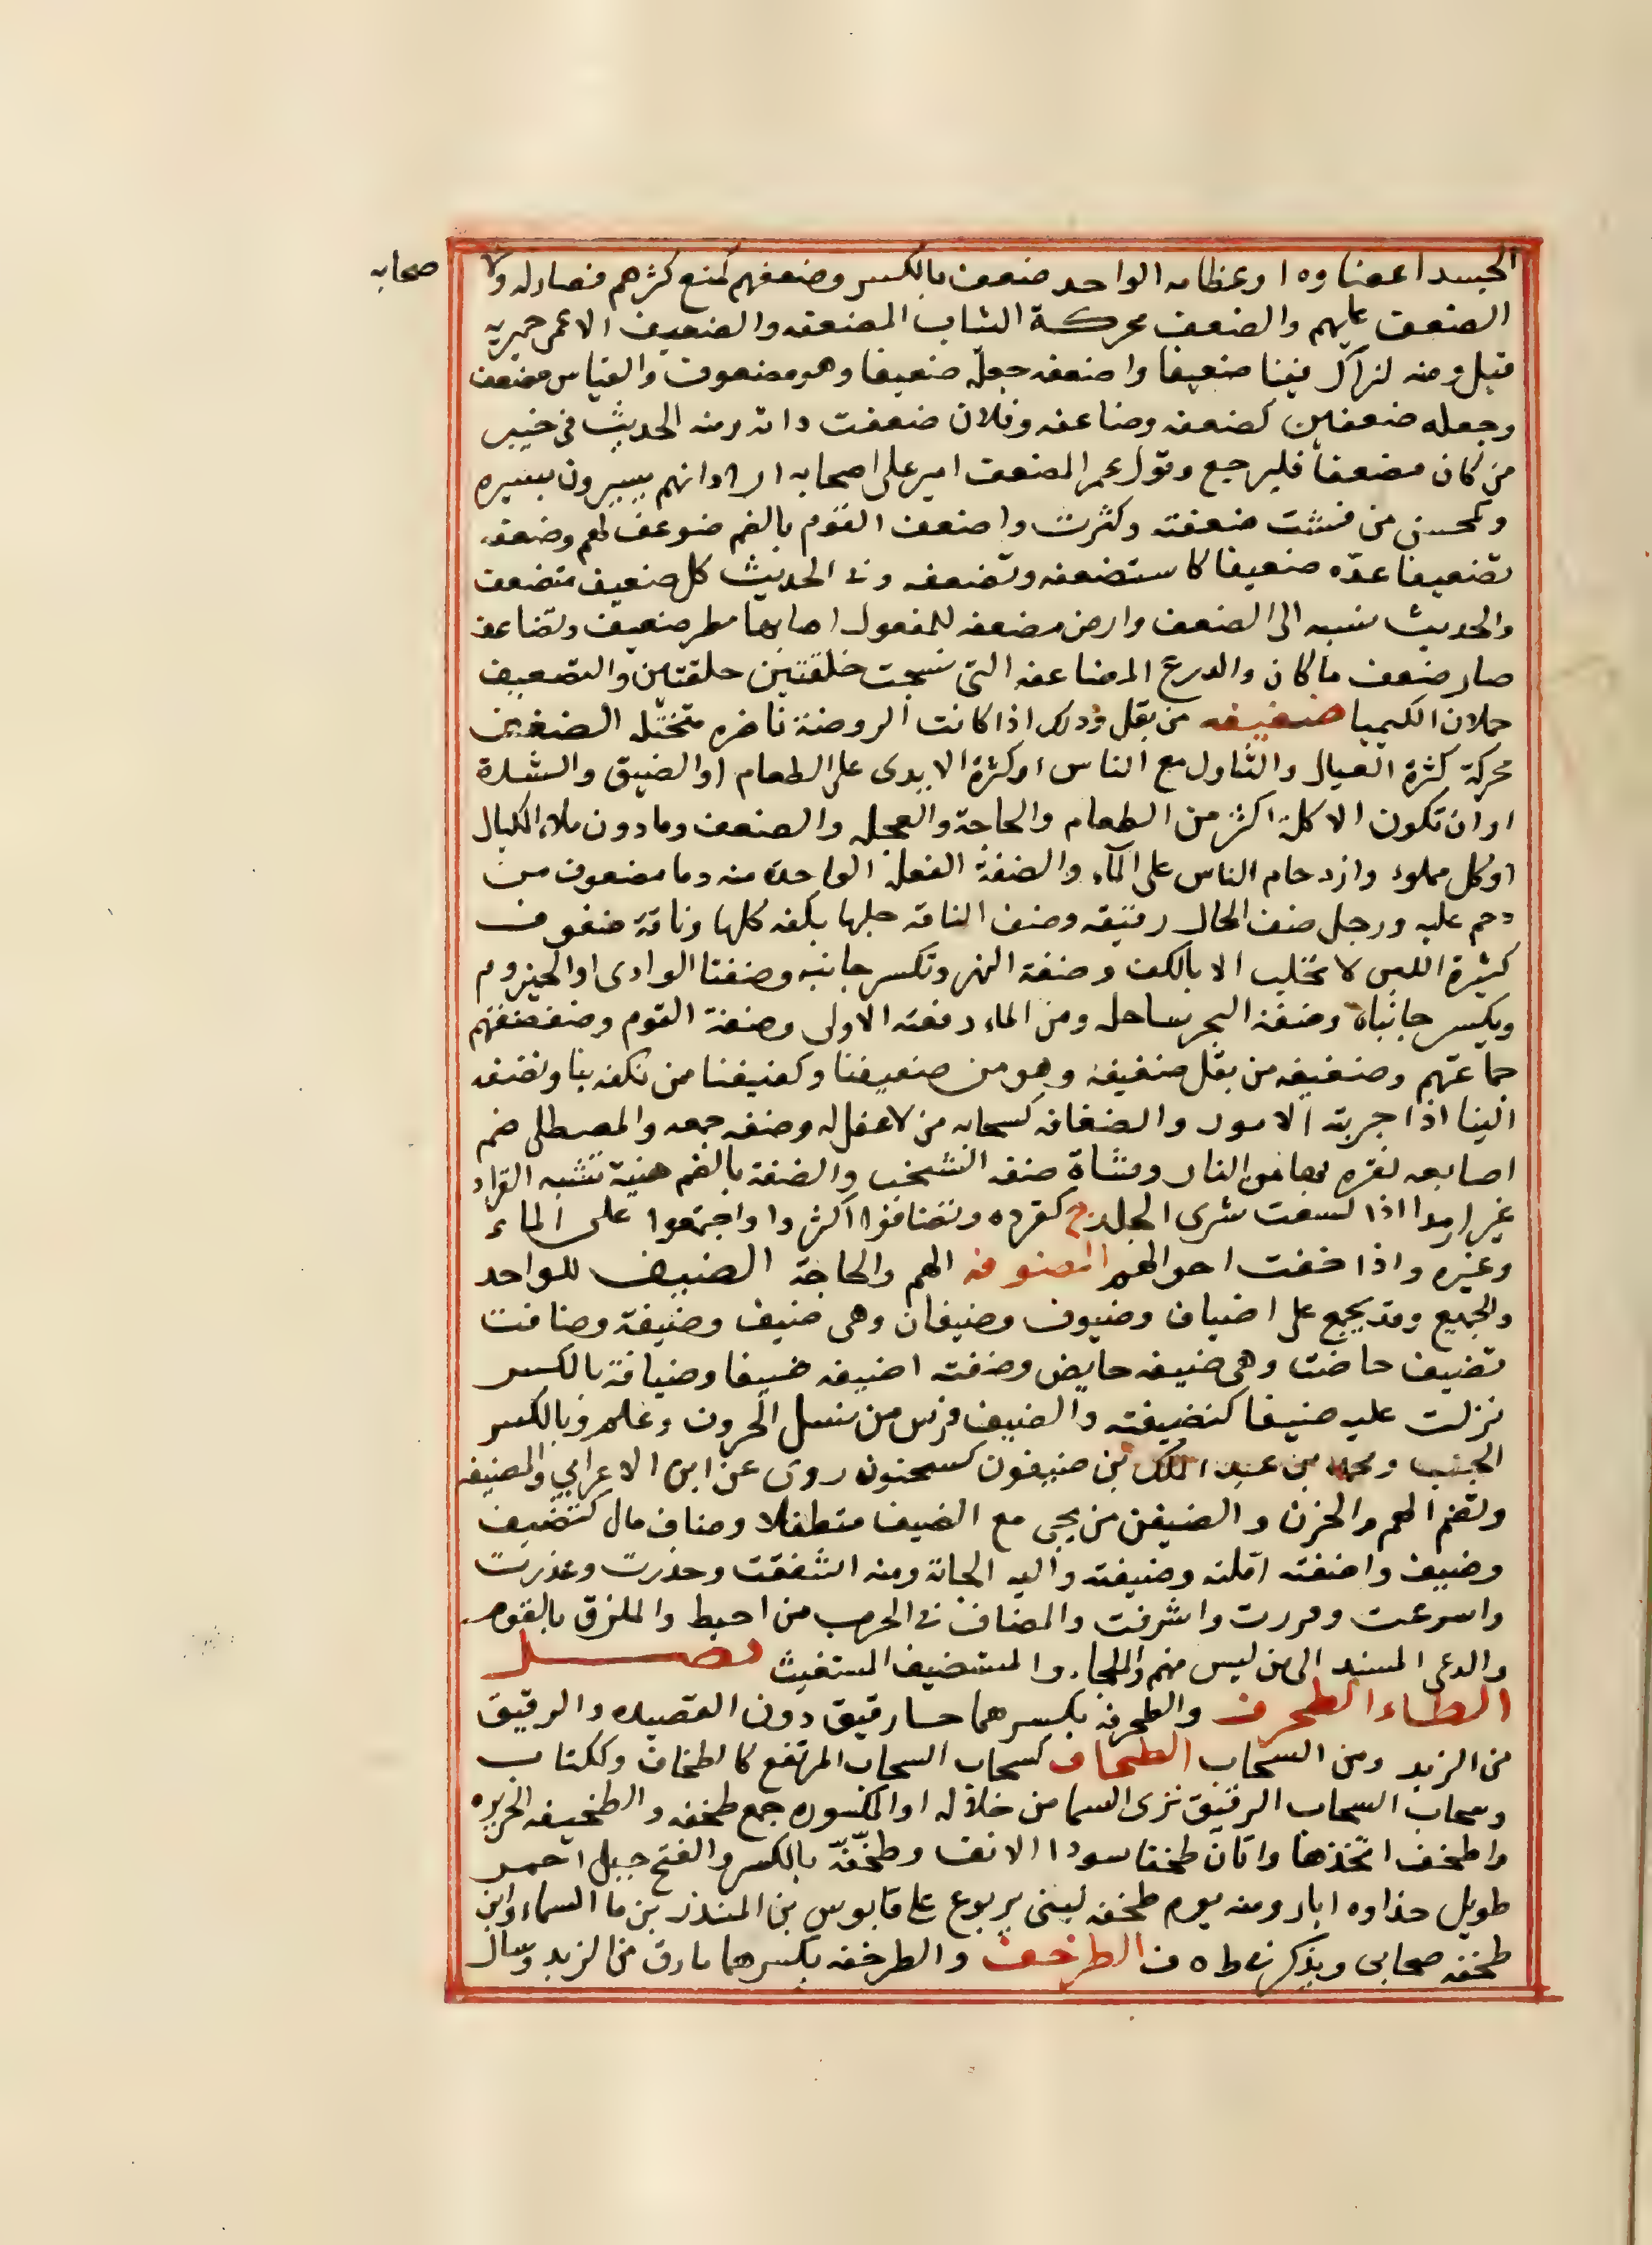 الجسد اعضاوه او عظامه الواحد ضعف بالكسر وضعفهم كمنع كثرهم فصار له ولا
صحابه
الضعف عليهم والضعف محركة الثياب المضعفه والضعيف الاعمى حميريه
قيل ومنه لنراك فينا ضعيفا واضعفه جعله ضعيفا وهو مضعوف والقياس مضعف
وجعله ضعفين كضعفه وضاعفه وفلان ضعفت دابته ومنه الحديث فى خيبر
من كان مضعفا فليرجع وقول عمر المضعف امير على اصحابه اراد انهم يسيرون بسيره
وكمحسن من فشت ضعفته وكثرت واضعف القوم بالضم ضوعف لهم وضعفه
تضعيفا عدّه ضعيفا كاستضعفه وتضعفه وفى الحديث كل ضعيف متضعف
والحديث نسبه الى الضعف وارض مضعفه للمفعول اصابها مطر ضعيف وتضاعف
صار ضعف ما كان والدرع المضاعفه التى نسجت حلقتين حلقتين والتضعيف
حملان الكيميا ضغيفه من بقل وذلك اذا كانت الروضة ناضره متخيله الضفف
محركة كثرة العيال والتناول مع الناس اوكثرة الايدى على الطعام او الضيق والشدة
او ان تكون الاكلة اكثر من الطعام والحاجة والعجله والضعف وما دون ملاء المكيال
او كل مملوء وازدحام الناس على الماء والضفة الفعلة الواحدة منه وما مضفوف من
دحم عليه ورجل ضف الحال رقيقه وضف الناقه حلبها بكفه كلها وناقة ضفوف
كثيرة اللبن لا تحلب الا بالكف وضفة النهر وتكسر جانبه وضفتا الوادى او الحيزوم
ويكسر جانباه وضفة البحر ساحله ومن الماء دفعته الاولى وضفة القوم وضفضفتهم
جماعتهم وضفيفه من بقل ضغيفة وهو من ضفيفنا وكفيفنا من نكفه بنا ونضفه
الينا اذا حزبته الامور والضفافه كسحابه من لا عقل له وضفه جمعه والمصطلى ضم
اصابعه فقربها من النار وشاة ضفه الشخب والضفة بالضم هنية تشبه القراد
غبراء رمدا اذا لسعت شرى الجلد ج كقرده وتضافوا اكثروا واجتمعوا على الماء
وغيره واذا خفت احوالهم المضوفه الهم والحاجة الضيف للواحد
والجميع وقد يجمع على اضياف وضيوف وضيفان وهى ضيف وضيفة وضافت
تضيف حاضت وهى ضيفه حايض وضفته اضيفه ضيفا وضيافة بالكسر
نزلت عليه ضيفا كتضيفته والضيف فرس من نسل الحرون وعلم وبالكسر
الجنب ومحمد بن عبد الملك بن ضيفون كسحنون روى عن ابن الاعرابي والمضيفه
وتضم الهم والحزن والضيفن من يجى مع الضيف متطفلا وضاف مال كتضيف
وضيف واضفته املته وضيفته واليه الجاته ومنه اشفقت وحذرت وعذرت
واسرعت وفررت واشرفت والمضاف فى الحرب من احيط والملزق بالقوم
والدعى المسند الى من ليس منهم والملجاء والمستضيف المستغيث فصل
الطاء الطحرف والطحرفة بكسرهما حسا رقيق دون العصيده والرقيق
من الزبد ومن السحاب الطحاف كسحاب السحاب المرتفع كالطخاف وككتاب
وسحاب السحاب الرقيق ترى السما من خلاله او المكسوره جمع طخفه والطخيفه الخزيره
واطخف اتخذها واتان طخفا سودا الانف وطخفة بالكسر والفتح جبل احمر
طويل حذاوه ابار ومنه يوم طخفه لبنى يربوع على قابوس بن المنذر بن ما السماء وابن
طخفه صحابى ويذكر فى ط ه ف الطرخف والطرخفه بكسرهما ما رق من الزبد وسال